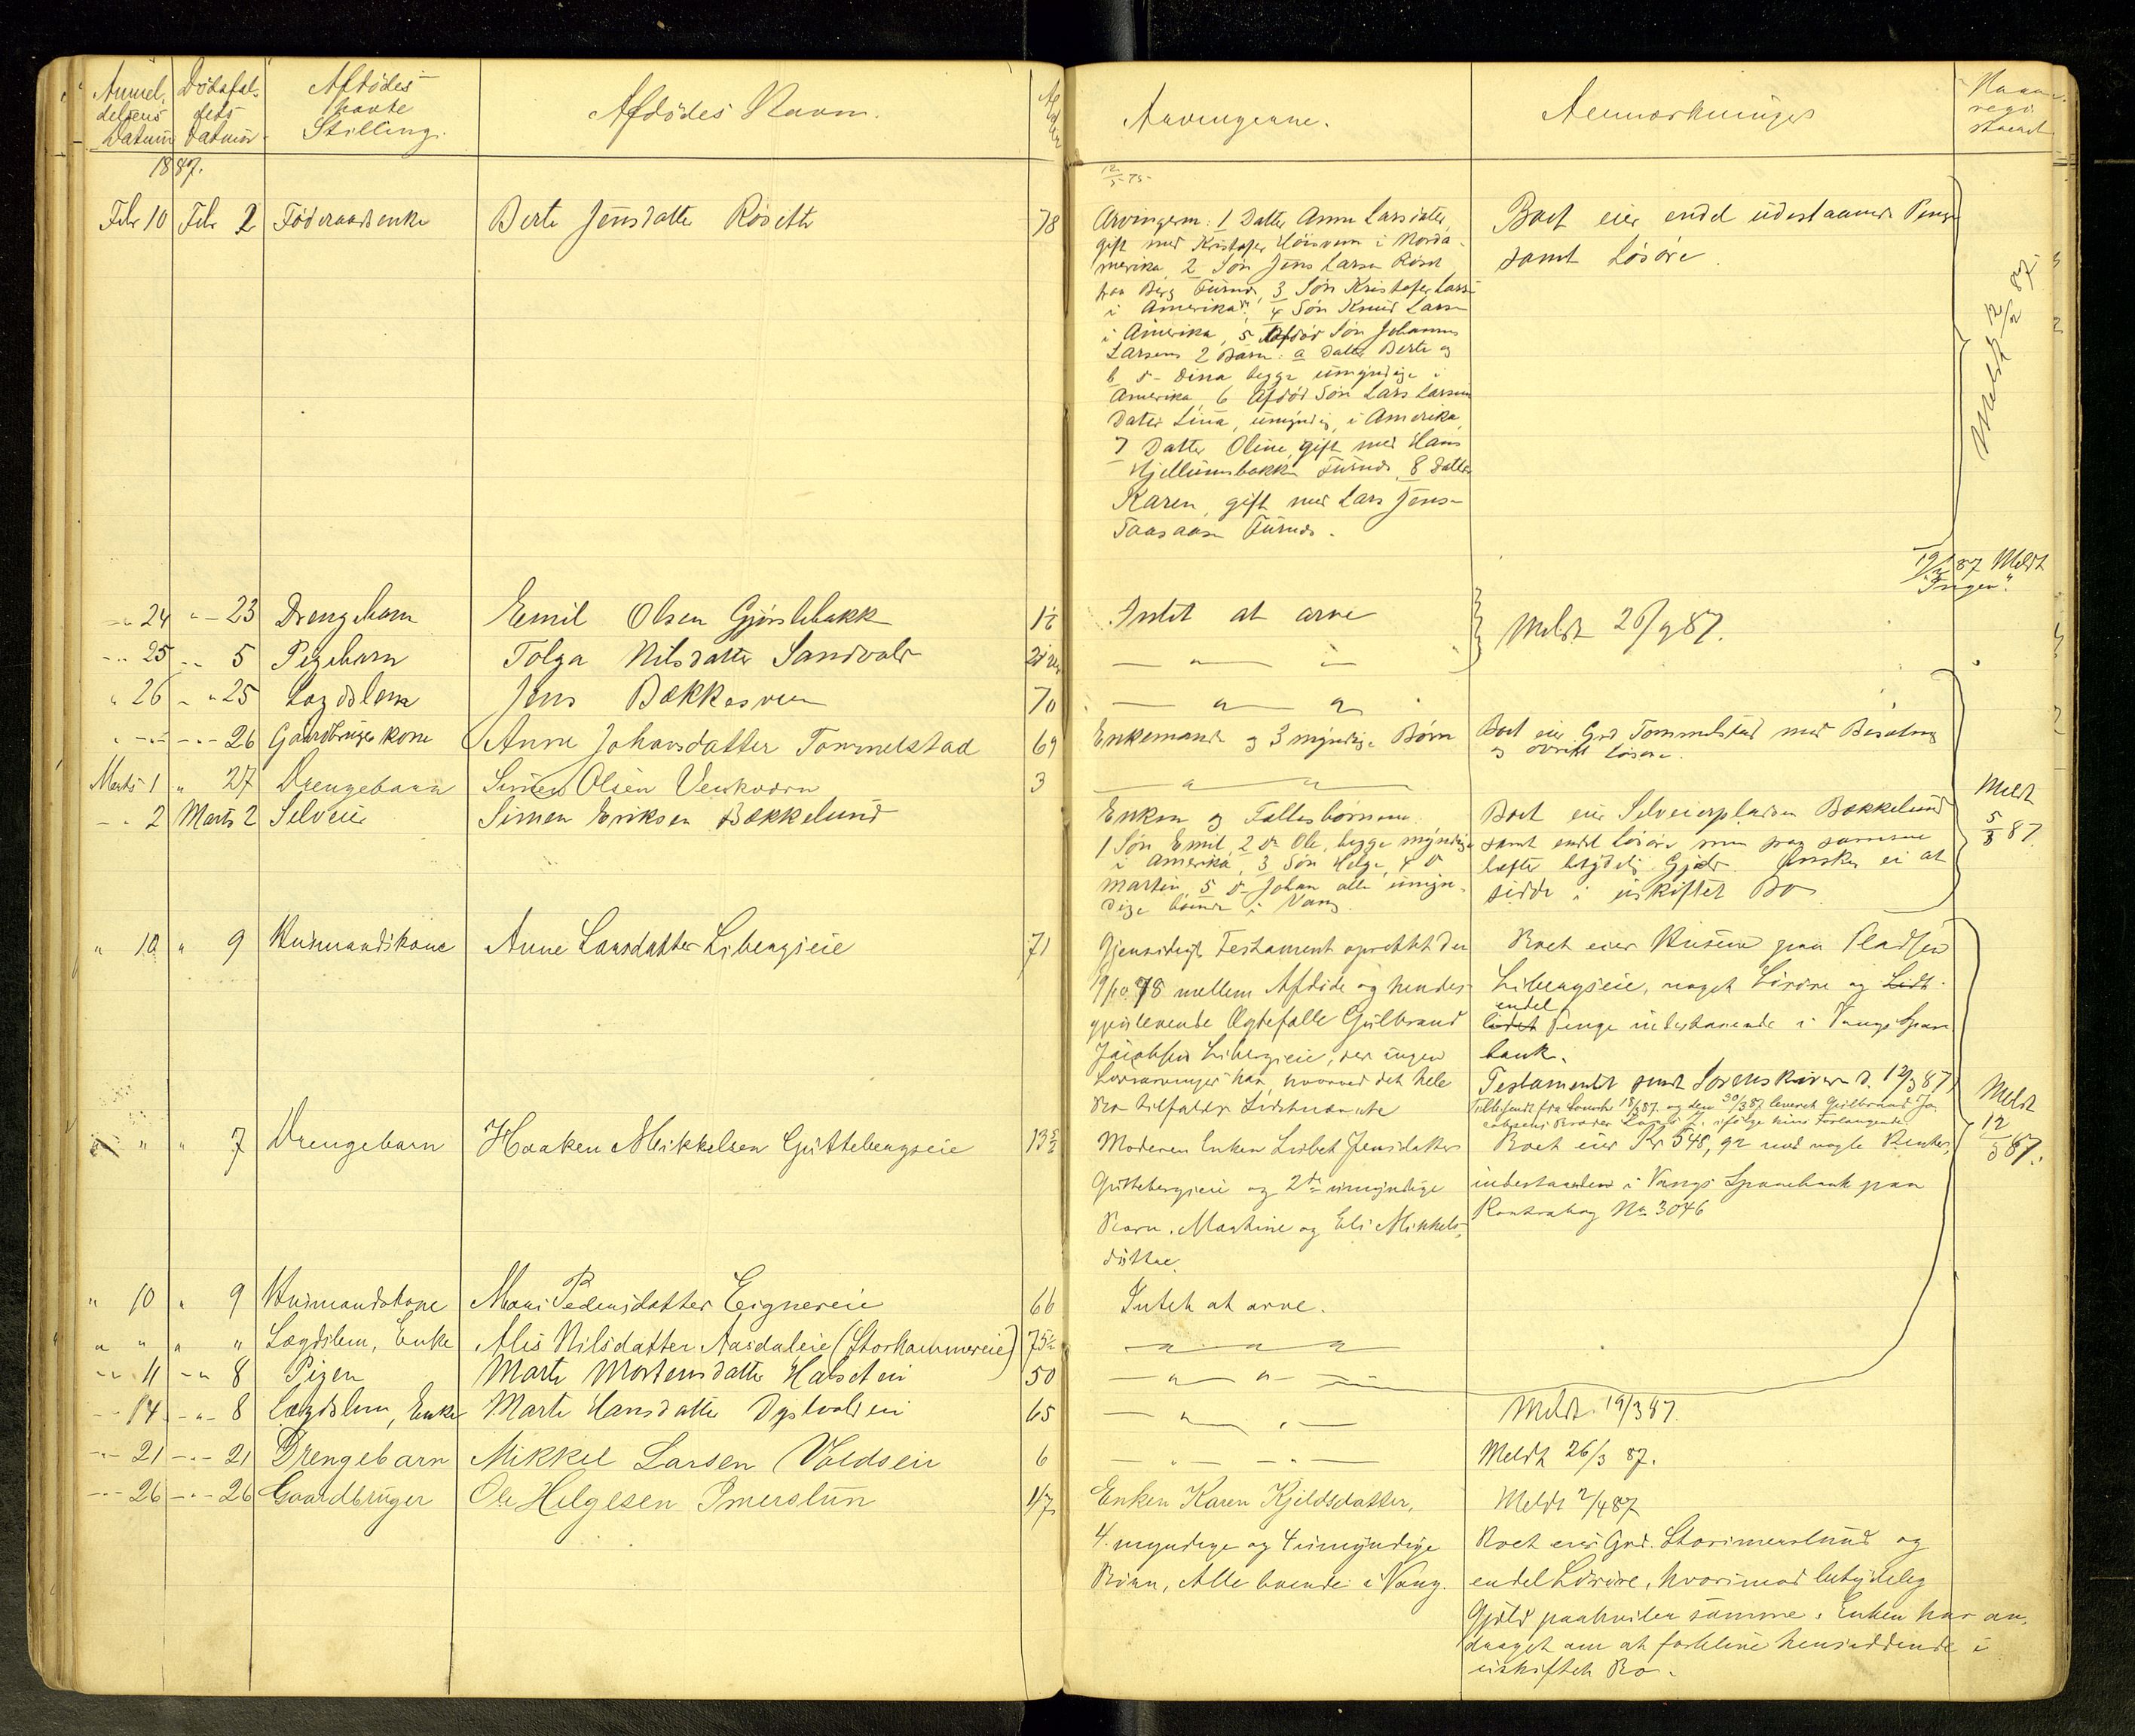 Anmel- Dödsfal- Afdödes Afdödes Navn. Alder
delsens dets havte
Datum Datum Stilling.
1887.
Febr 10 Febr 2 Föderaadsenke Berte Jensdatter Röseth 78
-"- 24 "- 23 Drengebarn Emil Olsen Gjörslebakk 1½
-"- 25 -"- 5 Pigebarn Tolga Nilsdatter Sandvold
" 26 - " 25 Lægdslem Jens Bækkesveen 70
" -"- -"- 26 Gaardbruger kone Anne Johansdatter Tommelstad 69
Marts 1 " 27 Drengebarn Simen Olsen Venkværn 3
- " 2 Marts 2 Selveier Simen Eriksen Bækkelund
" 10 " 9 Husmandskone Anne Larsdatter Libergseie 71
" " 7 Drengebarn Haaken Mikkelsen Guttebergseie 13
" 10 " 9 Husmandskone Mari Pedersdatter Eignereie 66
" " " " Lægdslem, Enke Alis Nilsdatter Aasdaleie (Storhammereie) 75½
-"- 11 -"- 8 Pigen Marte Mortensdatter Halseteie 50
-"- 14 -"- 8 Lægdslem, Enke Marte Hansdatter Dystvoldeie 65
-"- 21 -"- 21 Drengebarn Mikkel Larsen Voldseie 6
-"- 26 -"- 26 Gaardbruger Ole Helgesen Imerslun 47
Arvingerne. Anmærkninger
12/5 75
Arvingerne: 1 Datter Anne Larsdatter,
gift med Kristofer Höisveen i Norda-
merika, 2 Sön Jens Larsen Röset
paa Berg Furnes, 3 Sön Kristofer Larsen
i Amerika, 4 Sön Knud Larsen
i Amerika, 5 Afdöd Sön Johannes
Larsens 2 Börn: a Datter Berte og
b d- Dina begge umyndige i
Amerika, 6 Afdöd Sön Lars Larsens
Datter Lina, umyndig, i Amerika,
7 Datter Oline, gift med Hans
Hjellumsbakken Furnes, 8 Datter
Karen, gift med Lars Jensen
Taasaasen Furnes.
Boet eier endel udestaaende Penge
samt Lösöre.
Meldt 12/2 87.
19/2 87 Meldt
"Ingen".
Intet at arve
— " —
— " — "
Meldt 26/2 87.
Enkemand og 3 myndige Börn
Boet eier Grd Tommelstad med Besætning
og övrigt lösöre.
— " — "
Enken og Fællesbörnene
1 Sön Emil, 2 do Ole, begge myndige
i Amerika, 3 Sön Helge, 4 d
Martin, 5 d- Johan alle umyn-
dige boende i Vang.
Boet eier Selveierpladsen Bækkelund
samt endel lösöre, men paa samme
hefter betydelig Gjæld. Ønsker ei at
sidde i uskiftet Bo
Meldt
5/3 87.
Gjensidigt Testament oprettet den
9/10 78 mellem Afdöde og hendes
gjenlevende Ægtefælle Gulbrand
Jacobsen Libergseie, der ingen
Livsarvinger har, hvorved det hele
Bo tilfalder Lidstnævnte
Boet eier Husene paa Pladsen
Libergseie, noget Lösöre og Lidt
endel
lidet Penge indestaaende i Vangs Spare-
bank.
Testamentet sendt Sorenskriveren d. 12/3 87,
Tilbagesendt fra Sorenskr 18/3 87. og den 30/3 87 leveret Gulbrand Ja-
cobsens Broder Lars J. ifölge hans Forlangende
Moderen Enken Lisbet Jensdatter
Guttebergseie og 2de umyndige
Börn, Martine og Eli Mikkels-
döttre.
Boet eier Kr 548,92 med nogle Renter,
indestaaende i Vangs Sparebank paa
Kontrabog No 3046
Meldt
12/3 87.
Intet at arve.
— " — " — "
— " — " —
— " — " —
Meldt 19/3 87.
— " — " —
Meldt 26/3 87.
Enken Karen Kjeldsdatter,
4 myndige og 4 umyndige
Börn, Alle boende i Vang.
Meldt 2/4 87
Boet eier Grd. Storimerslund og
endel Lösöre, hvorimod betydelig
Gjæld paahviler samme. Enken har an-
draget om at forblive hensiddende i
uskiftet Bo.